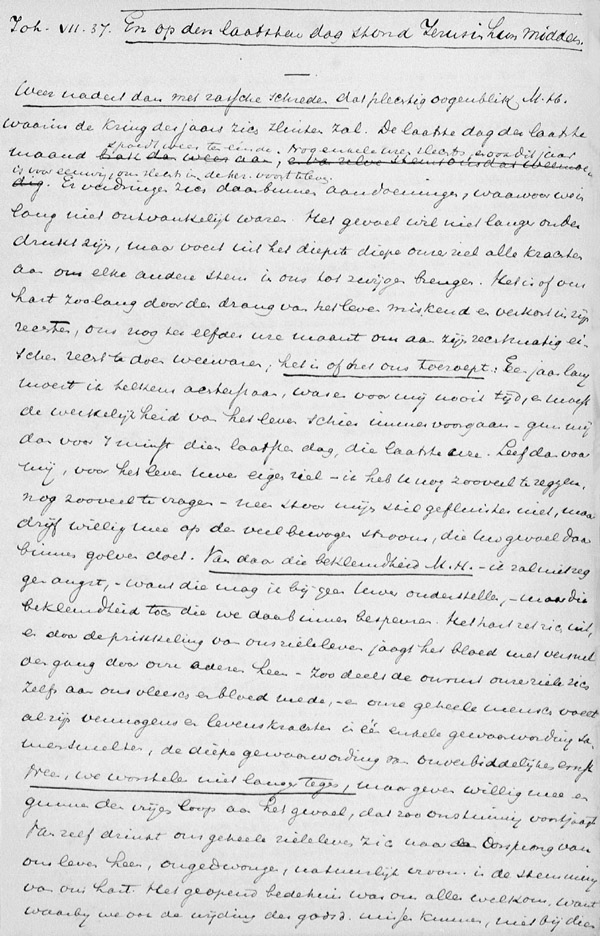 Joh. VII. 37. En op den laatsten dag stond Jezus in hun midden.
Weer nadert dan met rassche schreden dat plechtig oogenblik M.H.
waarin de kring des jaars zich sluiten zal. De laatste dag der laatste
spoedt weer ten einde. Nog enkele uren slechts, en ook dit jaar
maand
is voor eeuwig, om slechts in de her. voort te leven.
Er verdringen zich daarbinnen aandoeningen, waarvoor we in
lang niet ontvankelijk waren. Het gevoel wil niet langer onder
drukt zijn, maar voert uit het diepste diepe onzer ziel alle krachten
aan om elke andere stem in ons tot zwijgen brengen. Het is of ons
hart zoolang door den drang van het leven miskend en verkort in zijn
rechten, ons nog ter elfder ure maant om aan zijn rechtmatig ei-
schen recht te doen weervaren; het is of het ons toeroept: Een jaar lang
moest ik telkens achterstaan, was er voor mij nooit tijd, en moest
de werkelijkheid van het leven schier immer voorgaan - gun mij
dan voor 't minst dien laatsten dag, die laatste ure. Leef dan voor
mij, voor het leven uwer eigen ziel - ik heb u nog zooveel te zeggen,
nog zooveel te vragen - neen stoor mijn stil gefluister niet, maar
drijf willig mee op den veelbewogen stroom, die uw gevoel daar
binnen golven doet. Van daar die beklemdheid M.H. - ik zal niet zeg
gen angst, - want die mag ik bij geen uwer onderstellen, - maar die
beklemdheid toch die we daarbinnen bespeuren. Het hart zet zich uit,
en door de prikkeling van ons zieleleven jaagt het bloed met versnel
den gang door onze aderen heen - zoo deelt de onrust onzer ziele zich
zelfs aan ons vleesch en bloed mede, - en onze geheele mensch voelt
al zijn vermogens en levenskrachten in één enkele gewaarwording sa-
mensmelten, de diepe gewaarwording van onverbiddelijken ernst.
Neen, we worstelen niet langer tegen, maar geven willig mee en
gunnen den vrijen loop aan het gevoel, dat zoo onstuimig voortjaagt
Van zelf dringt ons geheele zieleleven zich naar den Oorsprong van
ons leven heen, ongedwongen, natuurlijk vroom is de stemming
van ons hart. Het geopend bedehuis was ons allen welkom. Want
waar bij we ook de wijding der godsd. missen kunnen, niet bij dien